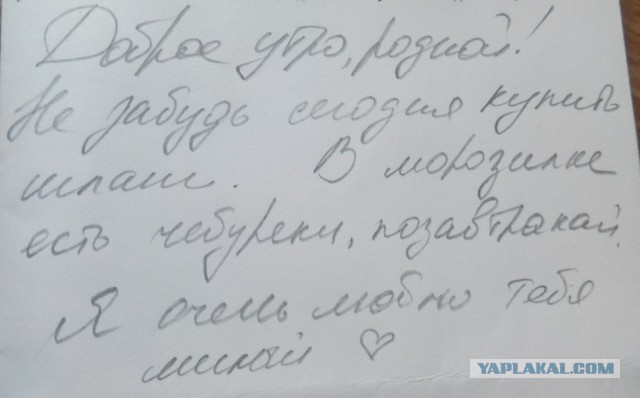 Доброе утро, родной!
Не забудь сегодня купить
шланг. В морозилке
есть чебуреки, позавтракай.
Я очень люблю тебя
милый ♡
YAPLAKAL.COM